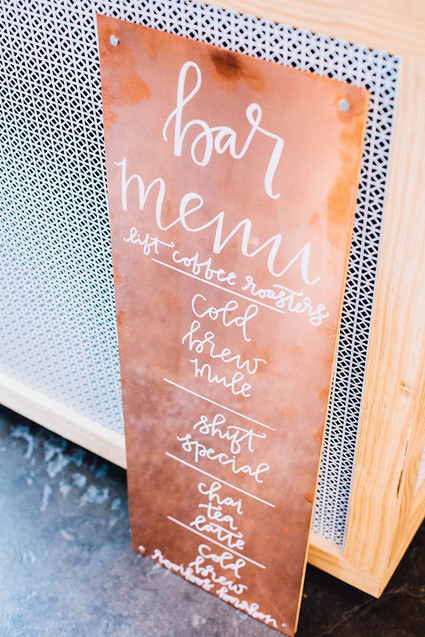 bar
menu
lift coffee roasters
cold
brew
mule
shift
special
chai
tea
latte
cold
brew